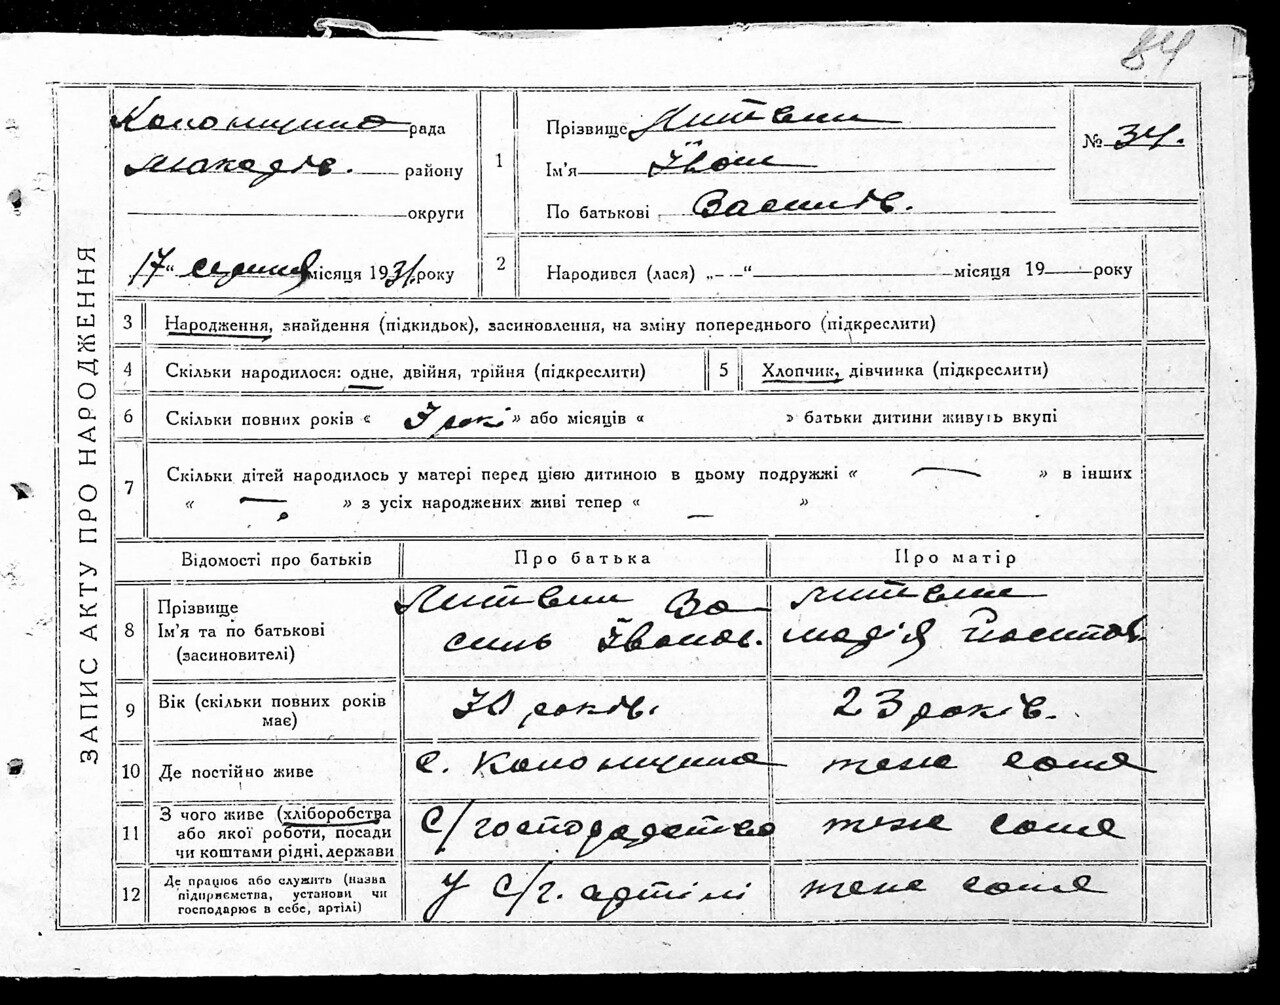 84
ЗАПИС АКТУ ПРО НАРОДЖЕННЯ
Колонщина рада
Макарів. району
округи
17 " серпня місяця 1931 року
1
Прізвище Литвин
Ім'я Іван
По батькові Василів.
№ 34.
2
Народився (лася) „ - - “ місяця 19 року
3 Народження, знайдення (підкидьок), засиновлення, на зміну попереднього (підкреслити)
4 Скільки народилося: одне, двійня, трійня (підкреслити)
5 Хлопчик, дівчинка (підкреслити)
6 Скільки повних років « 3 рокі » або місяців « » батьки дитини живуть вкупі
7 Скільки дітей народилось у матері перед цією дитиною в цьому подружжі « — » в інших
« — » з усіх народжених живі тепер « — »
Відомості про батьків Про батька Про матір
8 Прізвище
Ім'я та по батькові
(засиновителі)
Литвин Ва
силь Іванов.
Литвин
Марія Йосипов.
9 Вік (скільки повних років
має)
30 років.
23 років.
10 Де постійно живе с. Колонщина теж саме
11 З чого живе (хліборобства
або якої роботи, посади
чи коштами рідні, держави
С/господарство теж саме
12 Де працює або служить (назва
підприємства, установи чи
господарює в себе, артілі)
У С/г. артілі теж саме